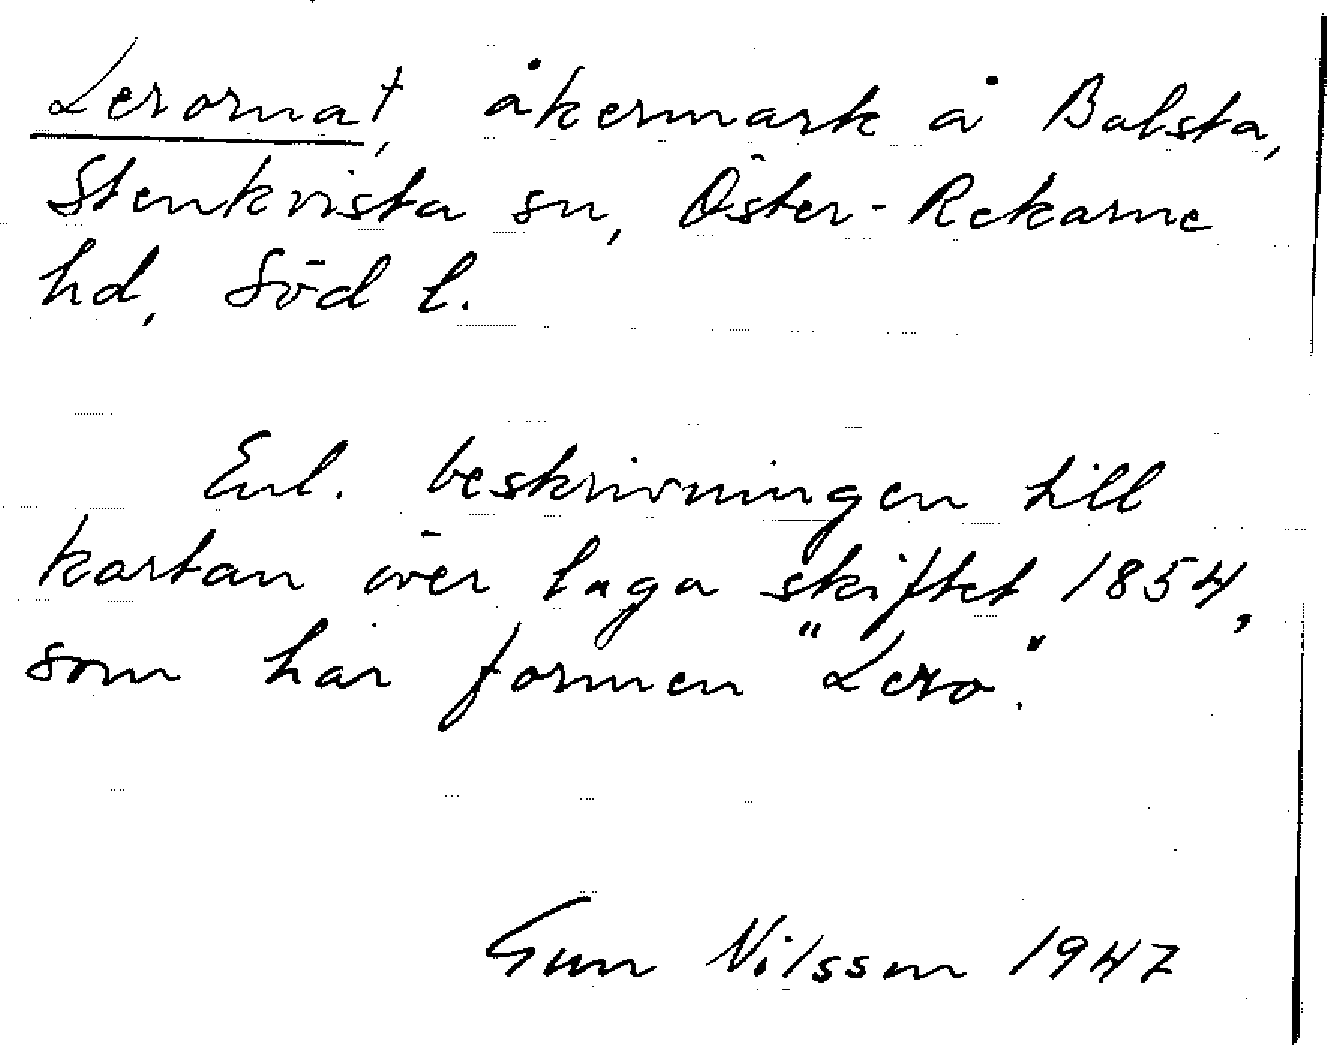 Lerorna†, åkermark å Balsta,
Stenkvista sn, Öster-Rekarne
hd, Söd l.
Enl. beskrivningen till
kartan över laga skiftet 1854,
som har formen "Lero".
Gun Nilsson 1947